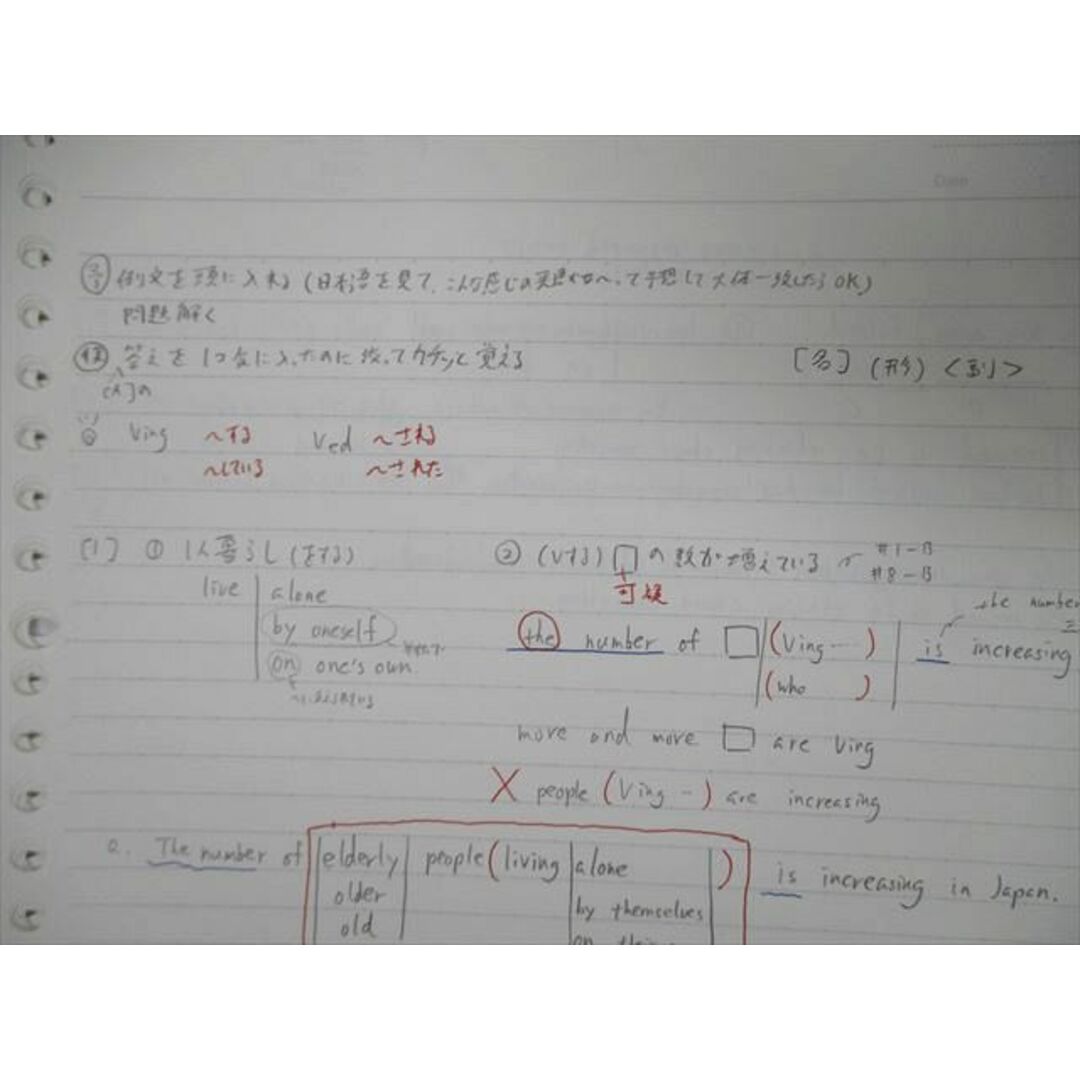 Date
予 例文を頭に入れる (日本語を見て、こんな感じの英語かな、って予想して大体一致したらOK)
問題解く
復 答えを1つ気に入ったのに絞ってカチッと覚える
[名] (形) <副>
Ving ~する Ved ~される
~している ~された
[1] ① 1人暮らし(をする)
live alone
by oneself
on one's own
② (Vする)□の数が増えている
#1-B
#8-B
可複
the number
the number of □ (Ving …) is increasing
(who )
more and more □ are Ving
× people (Ving -) are increasing
a. The number of elderly people (living alone) is increasing in Japan.
older by themselves
old on